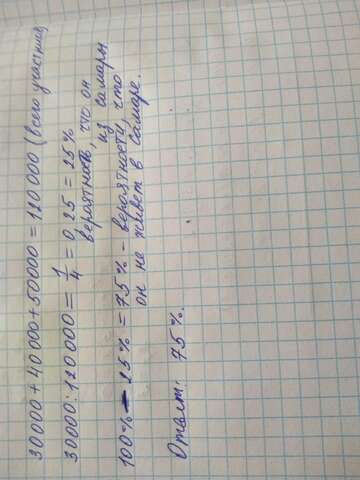 30000 + 40000 + 50000 = 120000 (всего участник
30000 : 120000 = 1/4 = 0,25 = 25%
вероятность, что он
из Самары
100% - 25% = 75% - вероятность, что
он не живёт в Самаре.
Ответ: 75%.